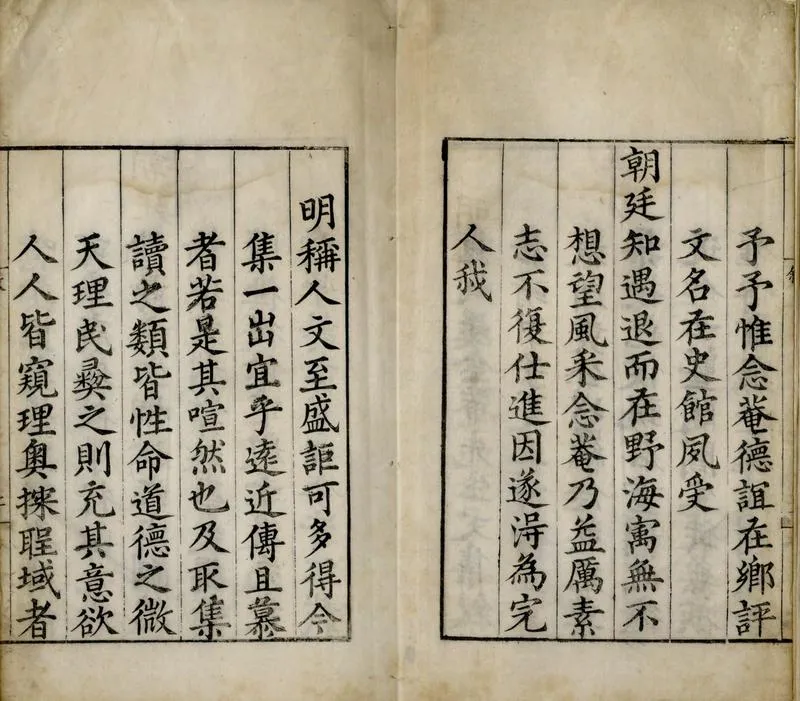 予予惟念菴德誼在鄉評
文名在史館夙受
朝廷知遇退而在野海寓無不
想望風采念菴乃益厲素
志不復仕進因遂淂為完
人我
明稱人文至盛詎可多得今
集一出宜乎遠近傳且慕
者若是其喧然也及取集
讀之類皆性命道德之微
天理民彜之則充其意欲
人人皆窺理奥探聖域者